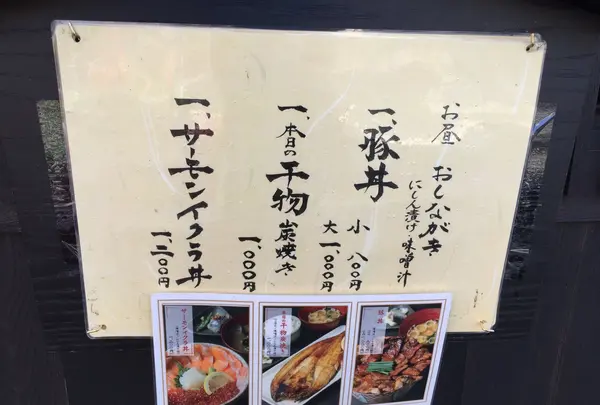 お昼 おしながき
にしん漬け・味噌汁
一、豚丼
小 八〇〇円
大 一、〇〇〇円
一、本日の干物炭焼き
一、〇〇〇円
一、サーモンイクラ丼
一、二〇〇円
サーモンイクラ丼
干物炭焼き
豚丼